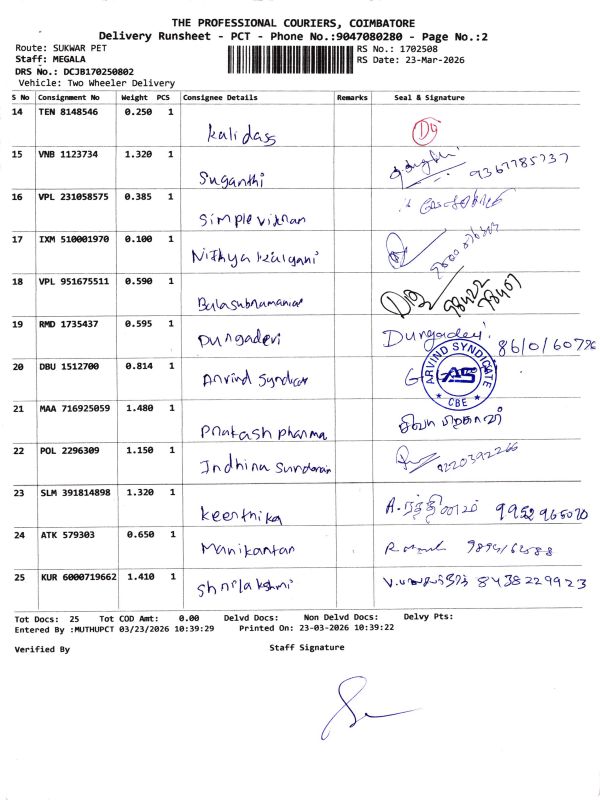 THE PROFESSIONAL COURIERS, COIMBATORE
Delivery Runsheet - PCT - Phone No.:9047080280 - Page No.:2
Route: SUKWAR PET RS No.: 1702508
Staff: MEGALA RS Date: 23-Mar-2026
DRS No.: DCJB170250802
Vehicle: Two Wheeler Delivery
S No Consignment No Weight PCS Consignee Details Remarks Seal & Signature
14 TEN 8148546 0.250 1
Kalidass
15 VNB 1123734 1.320 1
Suganthi 9367785737
16 VPL 231058575 0.385 1
Simple
17 IXM 510001970 0.100 1
Nithya kalyani
18 VPL 951675511 0.590 1
Balasubramanian
19 RMD 1735437 0.595 1
Durgadevi Durgadevi
20 DBU 1512700 0.814 1
Arvind Syndicate ARVIND SYNDICATE AS CBE
21 MAA 716925059 1.480 1
Prakash pharma
22 POL 2296309 1.150 1
Indhira 9220392266
23 SLM 391814898 1.320 1
Keerthika A. ரத்தினம் 9952965070
24 ATK 579303 0.650 1
Manikantan
25 KUR 6000719662 1.410 1
8438229923
Tot Docs: 25 Tot COD Amt: 0.00 Delvd Docs: Non Delvd Docs: Delvy Pts:
Entered By :MUTHUPCT 03/23/2026 10:39:29 Printed On: 23-03-2026 10:39:22
Verified By Staff Signature